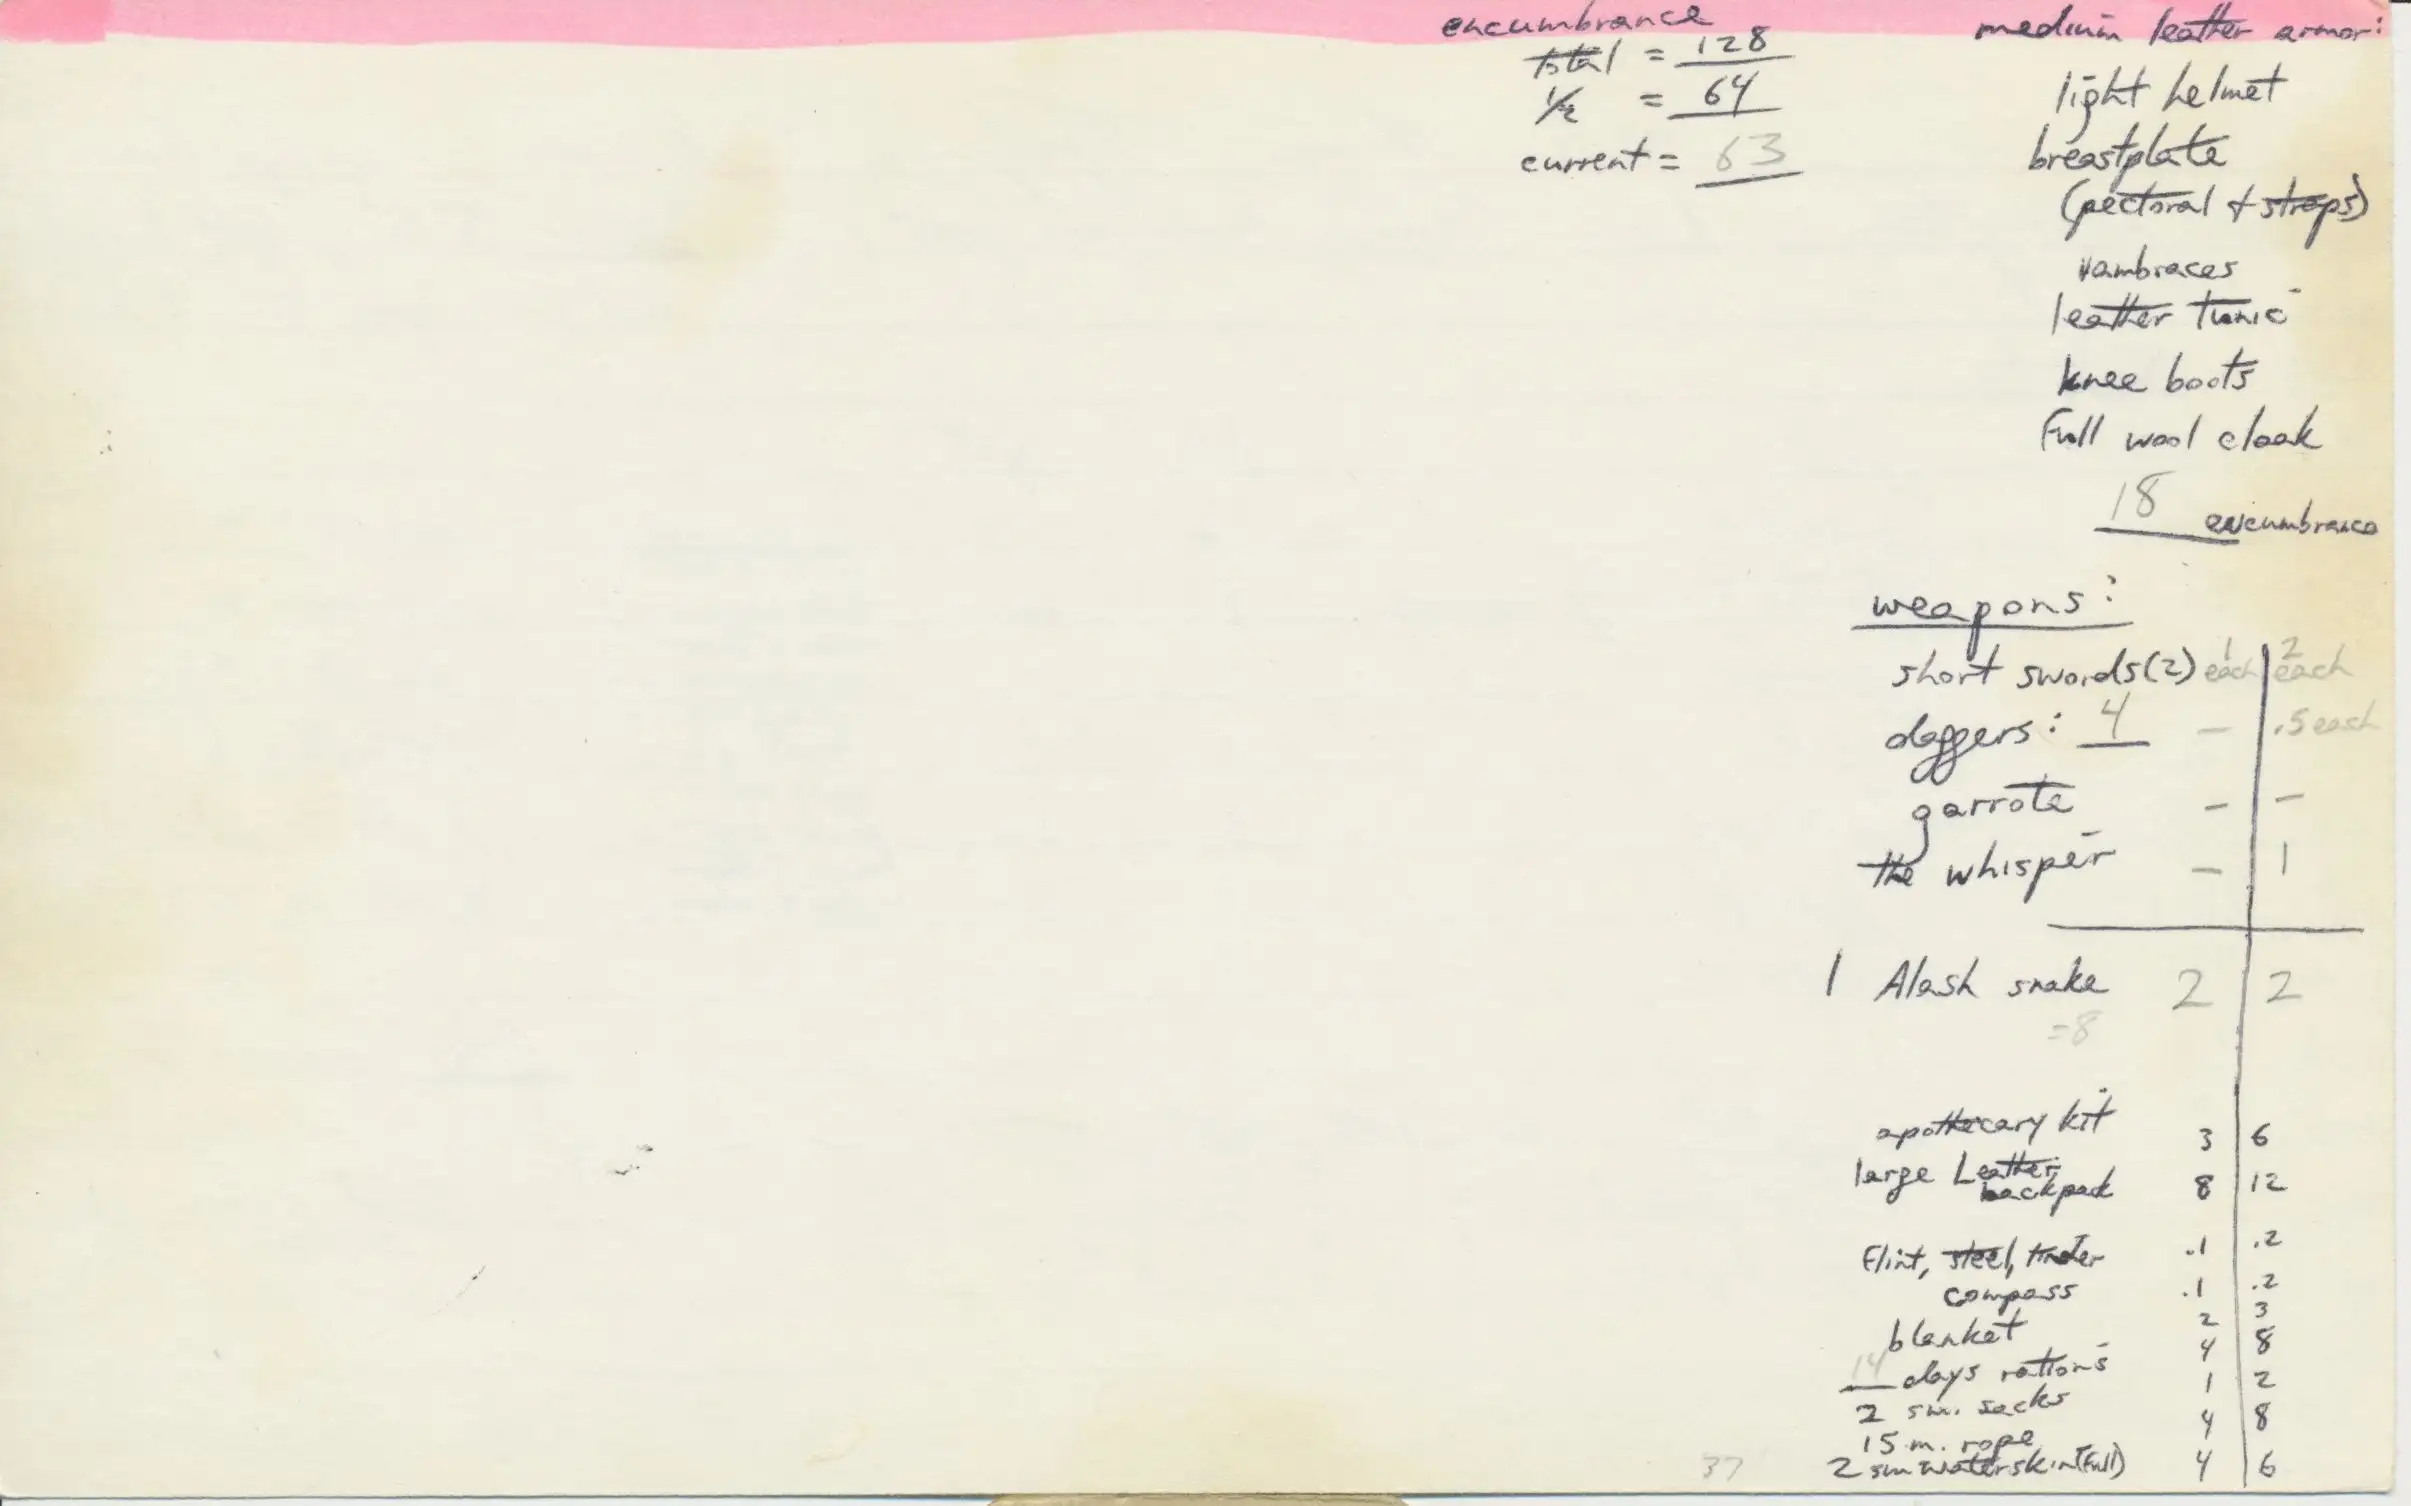 encumbrance
total = 128
1/2 = 64
current = 63
medium leather armor:
light helmet
breastplate
(pectoral & straps)
vambraces
leather tunic
knee boots
Full wool cloak
18 encumbrance
weapons:
short swords(2) 1 each 2 each
daggers: 4 - .5 each
garrote - -
the whisper - 1
1 Alash snake 2 2
=8
apothecary kit 3 6
large Leather
backpack 8 12
Flint, steel, tinder .1 .2
compass .1 .2
blanket 2 3
14 days rations 4 8
2 sm. sacks 1 2
15 m. rope 4 8
37 2 sm waterskin (full) 4 6